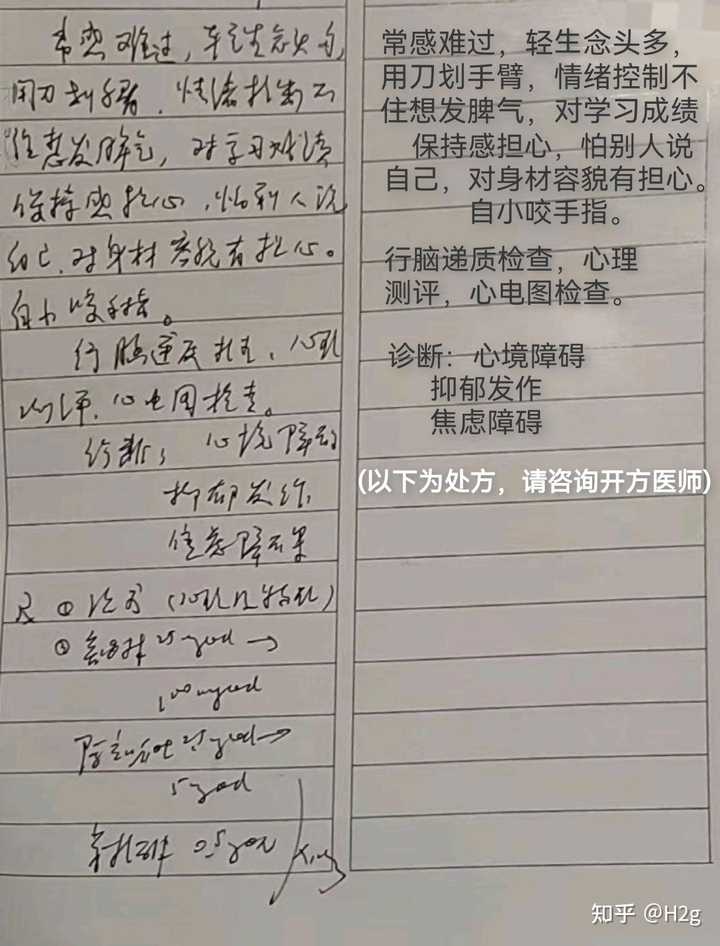 常感难过，轻生念头多，
用刀划手臂，情绪控制不
住想发脾气，对学习成绩
保持感担心，怕别人说
自己，对身材容貌有担心。
自小咬手指。
行脑递质检查，心理
测评，心电图检查。
诊断：心境障碍
抑郁发作
焦虑障碍
常感难过，轻生念头多，
用刀划手臂，情绪控制不
住想发脾气，对学习成绩
保持感担心，怕别人说
自己，对身材容貌有担心。
自小咬手指。
行脑递质检查，心理
测评，心电图检查。
诊断：心境障碍
抑郁发作
焦虑障碍
(以下为处方，请咨询开方医师)
知乎 @H2g